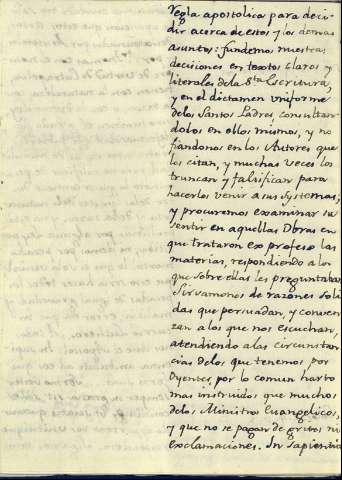 Regla apostolica para deci-
dir acerca de estos y los demas
asuntos: fundemos nuestras
decisiones en textos claros y
literales de la S.ta Escritura,
y en el dictamen uniforme
delos Santos Padres, consultan
dolos en ellos mismos, y no
fiandonos en los Autores que
los citan, y muchas veces los
truncan y falsifican para
hacerlos venir a sus systemas;
y procuremos examinar su
sentir en aquellas Obras en
que trataron ex profeso las
materias, respondiendo a los
que sobre ellas les preguntaban
Sirvamonos de razones soli
das que persuadan, y conven
zan a los que nos escuchan,
atendiendo a las circunstan
cias delos que tenemos por
Oyentes, por lo comun harto
mas instruidos que muchos
delos Ministros Euangelicos,
y que no se pagan de gritos ni
exclamaciones. In sapientia